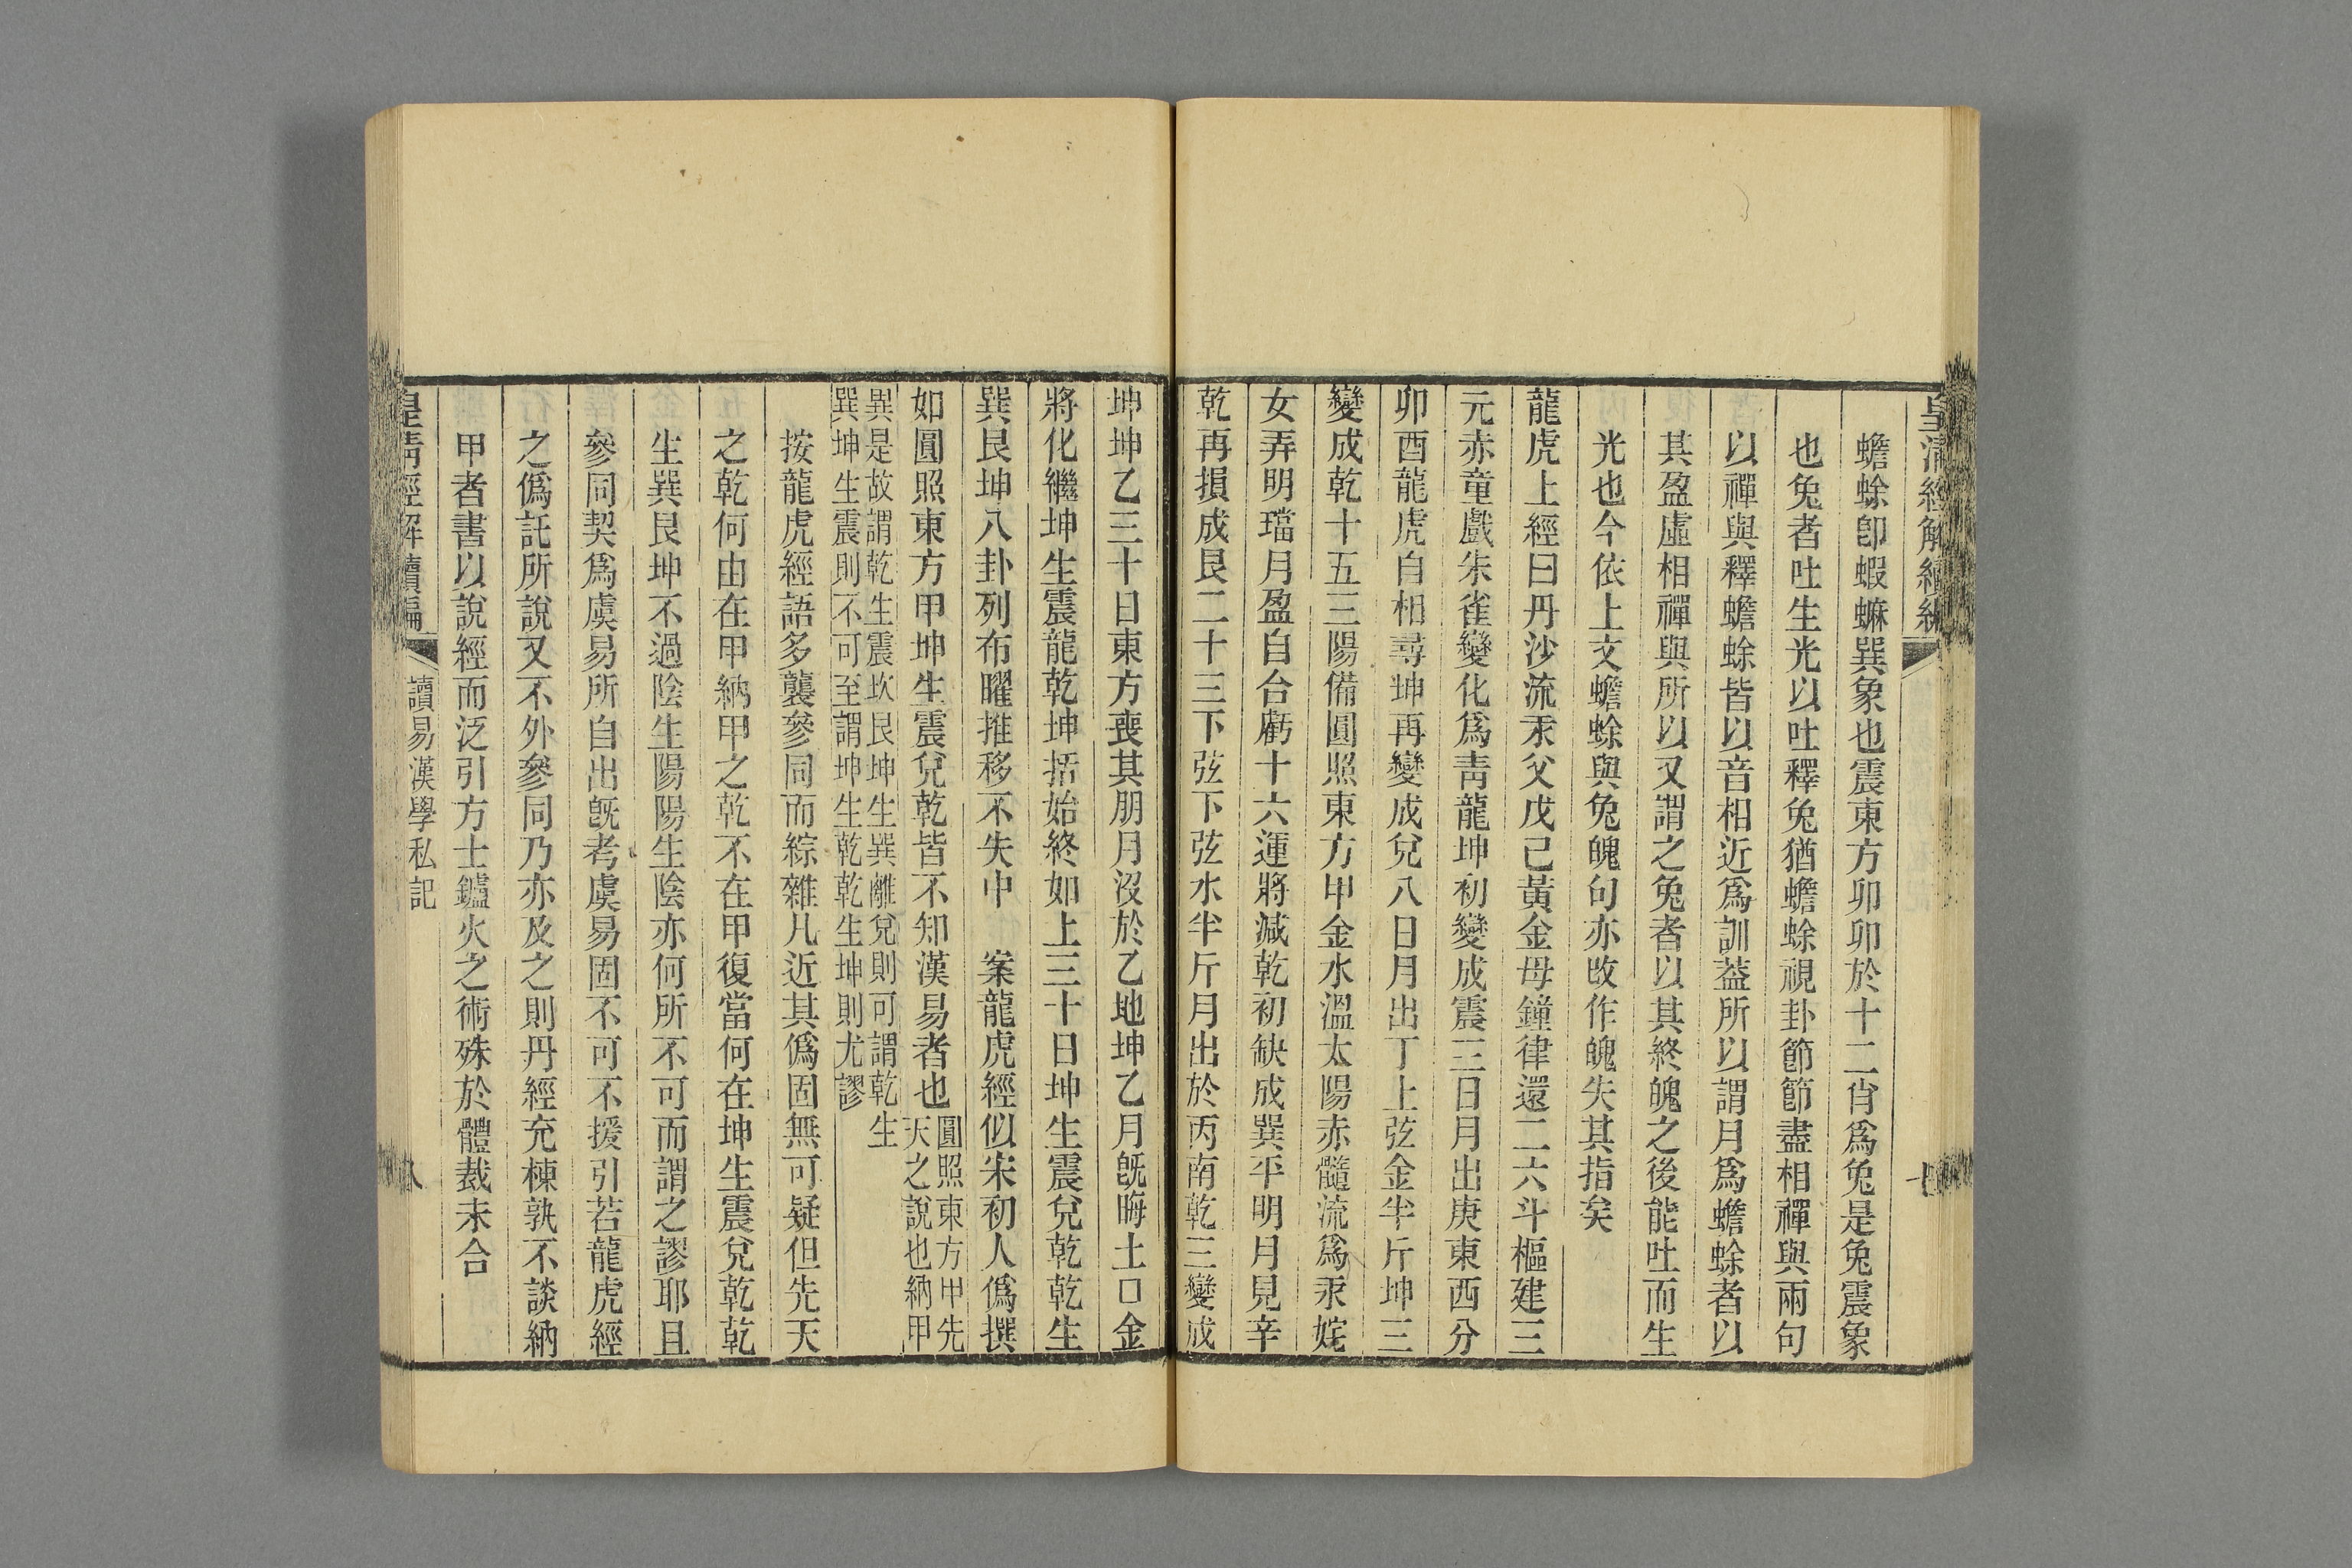 皇清經解續編
蟾蜍卽蝦蟆巽象也震東方卯卯於十二肖爲兔是兔震象
也兔者吐生光以吐釋兔猶蟾蜍視卦節節盡相禪與兩句
以禪與釋蟾蜍皆以音相近爲訓葢所以謂月爲蟾蜍者以
其盈虛相禪與所以又謂之兔者以其終魄之後能吐而生
光也今依上文蟾蜍與兔魄句亦改作魄失其指矣
龍虎上經曰丹沙流汞父戊己黃金母鐘律還二六斗樞建三
元赤童戲朱雀變化爲靑龍坤初變成震三日月出庚東西分
卯酉龍虎自相尋坤再變成兌八日月出丁上弦金半斤坤三
變成乾十五三陽備圓照東方甲金水溫太陽赤髓流爲汞姹
女弄明璫月盈自合虧十六運將減乾初缺成巽平明月見辛
乾再損成艮二十三下弦下弦水半斤月出於丙南乾三變成
坤坤乙三十日東方喪其朋月沒於乙地坤乙月旣晦土口金
將化繼坤生震龍乾坤括始終如上三十日坤生震兌乾乾生
巽艮坤八卦列布曜推移不失中 案龍虎經似宋初人僞撰
如圓照東方甲坤生震兌乾皆不知漢易者也圓照東方甲先
天之說也納甲
異是故謂乾生震坎艮坤生巽離兌則可謂乾生
巽坤生震則不可至謂坤生乾乾生坤則尤謬
按龍虎經語多襲參同而綜雜凡近其僞固無可疑但先天
之乾何由在甲納甲之乾不在甲復當何在坤生震兌乾乾
生巽艮坤不過陰生陽陽生陰亦何所不可而謂之謬耶且
參同契爲虞易所自出旣考虞易固不可不援引若龍虎經
之僞託所說又不外參同乃亦及之則丹經充棟孰不談納
甲者書以說經而泛引方士鑪火之術殊於體裁未合
皇清經解續編
讀易漢學私記
八